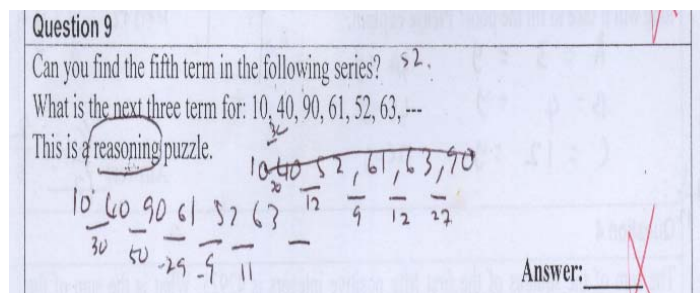 Question 9
Can you find the fifth term in the following series? 52.
What is the next three term for: 10, 40, 90, 61, 52, 63, ---
30
This is a reasoning puzzle.
10 40 52, 61, 63, 90
20 12 9 12 27
10 40 90 61 52 63
30 50 -29 -9 11
Answer: